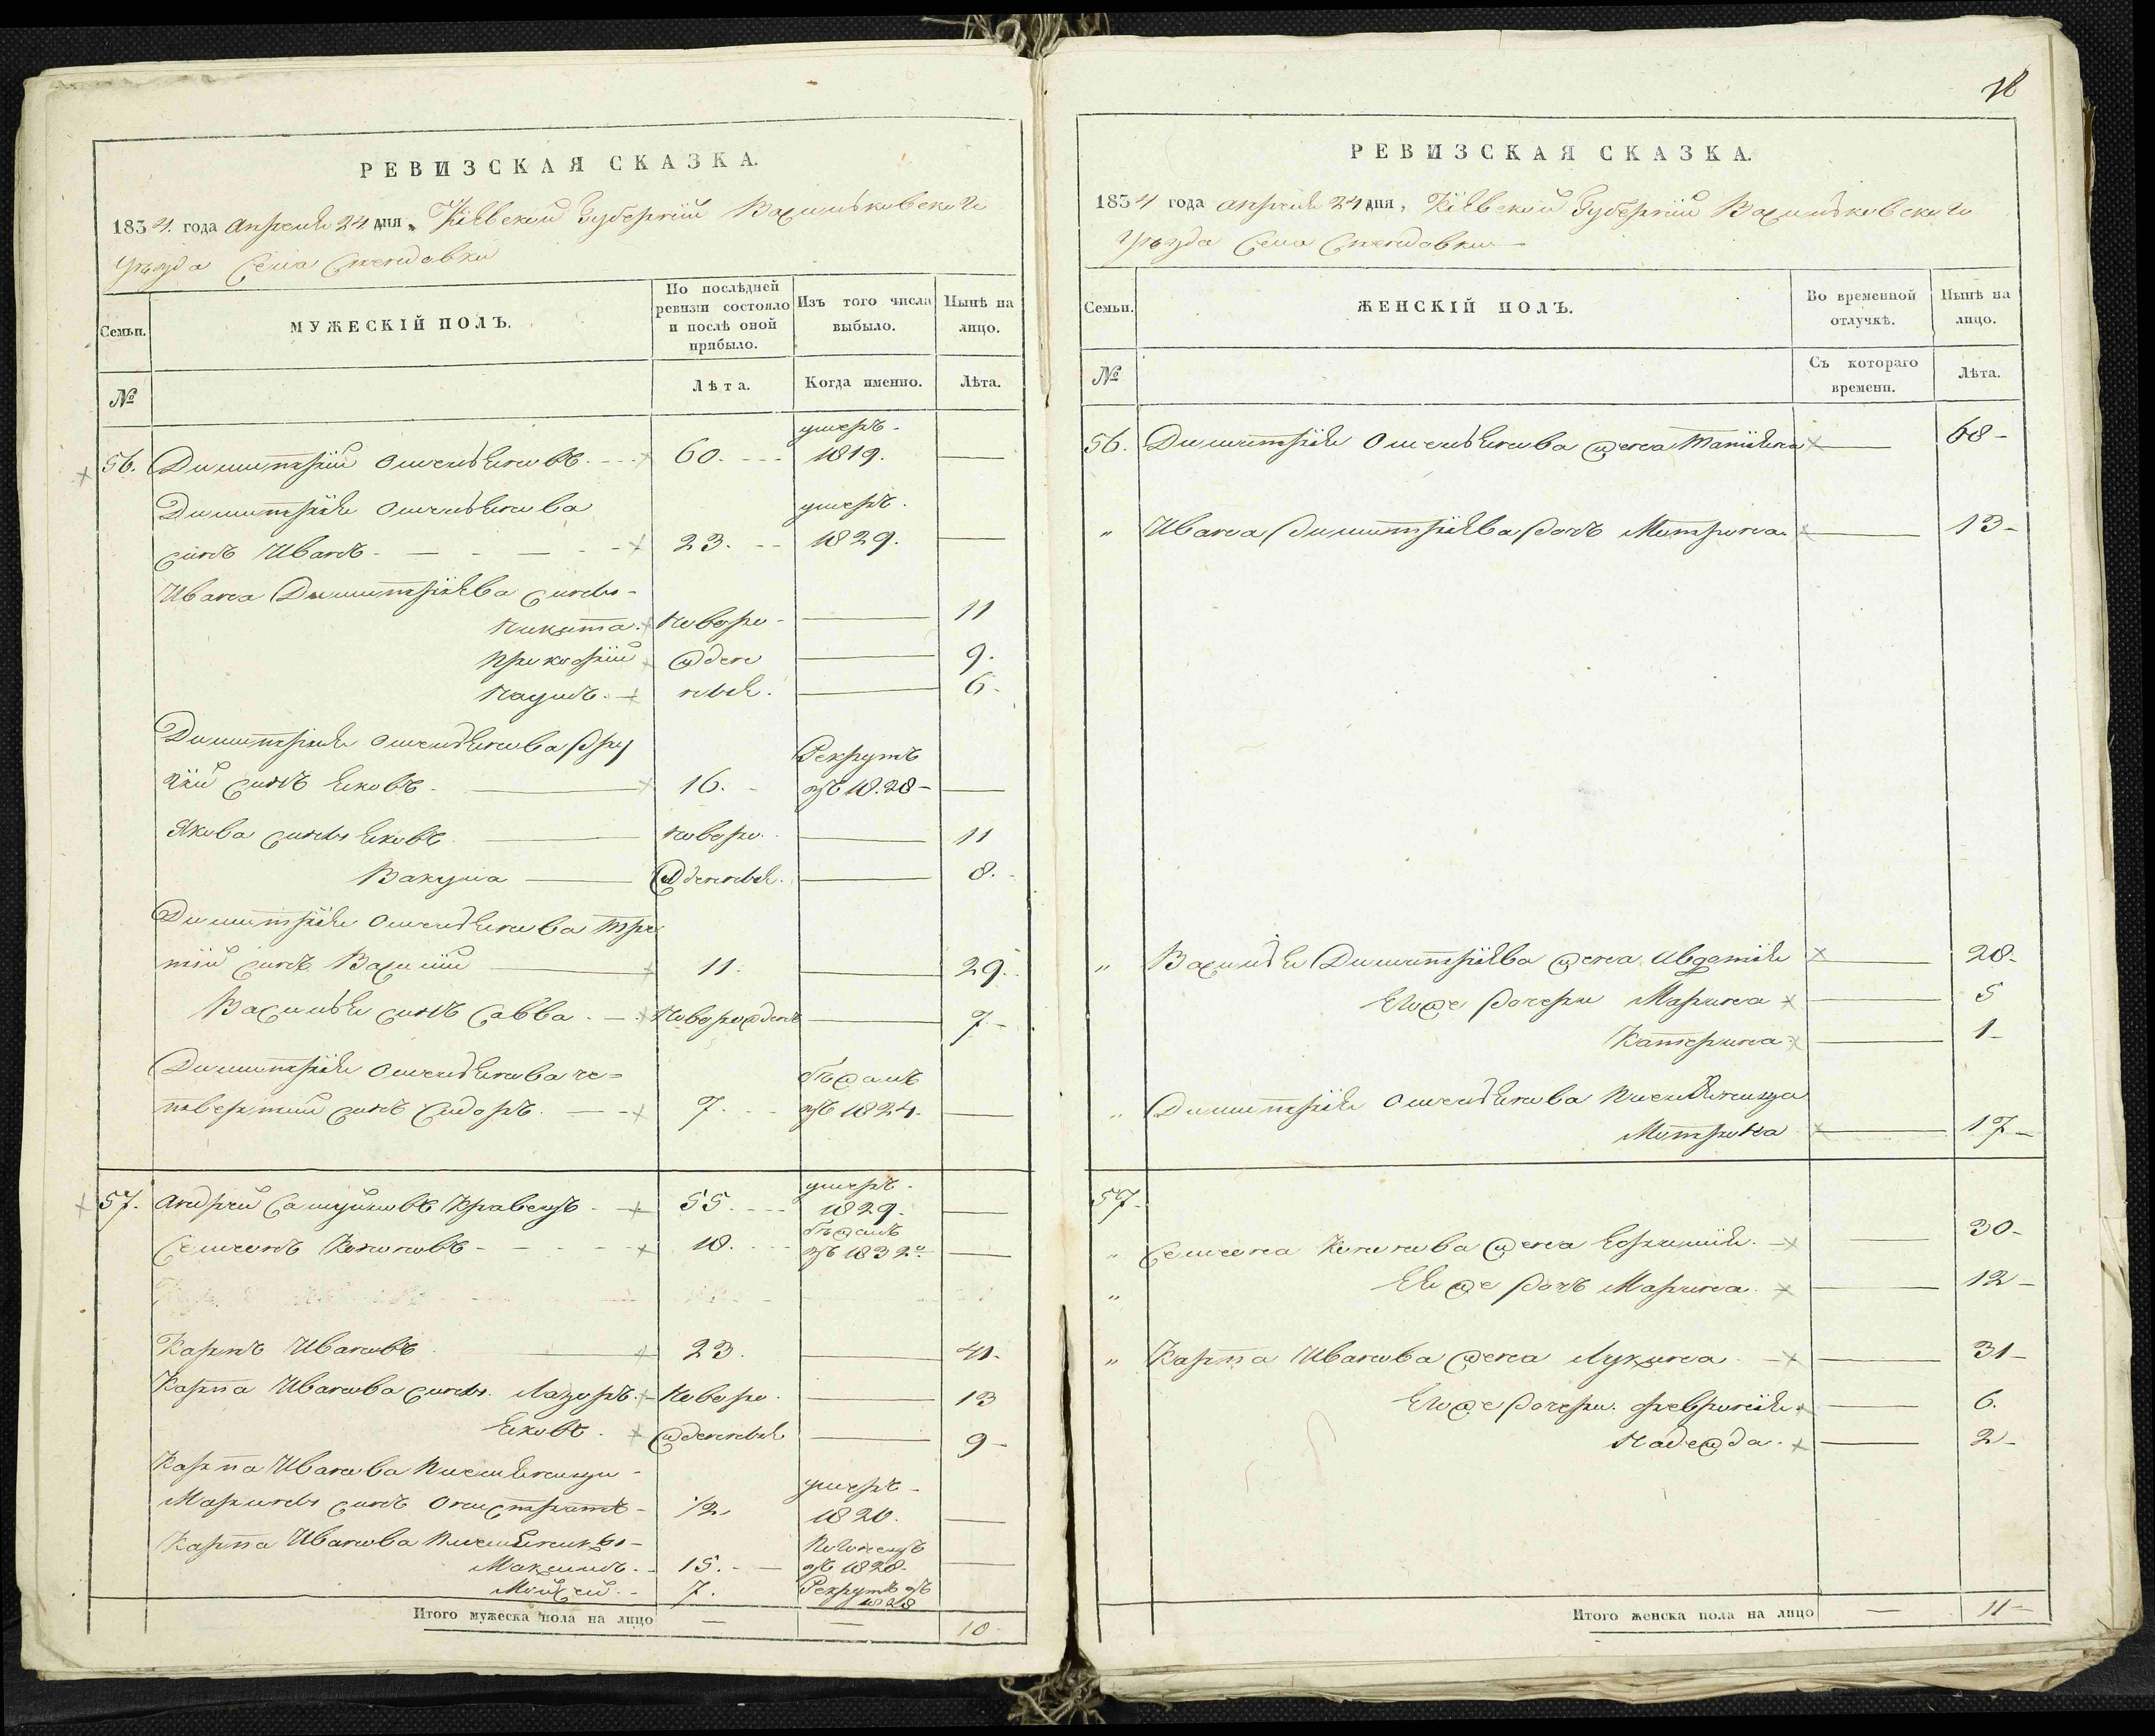 РЕВИЗСКАЯ СКАЗКА.
1834. года Апреля 24 дня, Кіевской Губерніи Васильковскаго
Уѣзда Села
Семьи.
МУЖЕСКІЙ ПОЛЪ.
По послѣдней ревизіи состояло и послѣ оной прибыло.
Изъ того числа выбыло.
Нынѣ на лицо.
№
Лѣта.
Когда именно.
Лѣта.
умеръ
56. Димитрій Омельяновъ 60. 1819.
Димитрія Омельянова умеръ.
сынъ Иванъ 23. 1829.
Ивана Димитріева сыны
Никита новоро 11
Прокофій жден 9.
Наумъ ные. 6
Димитрія Омельянова дру Рекрутъ
гій сынъ Яковъ 16. въ 1828
Якова сыны Яковъ новоро. 11
Вакула жденные. 8.
Димитрія Омельянова тре
тій сынъ Василій 11. 29.
Василья сынъ Савва новорожденъ 7
Димитрія Омельянова че= бѣжалъ
твертый сынъ Сидоръ. 7. въ 1824.
умеръ
57. Андрей Самуйловъ Кравецъ 55. 1829.
бѣжалъ
Семенъ Кононовъ 18. въ 1832го
Карпъ Ивановъ 23. 41
Карпа Иванова сыны. Лазарь новоро. 13
Яковъ. жденные 9
Карпа Иванова племянницы умеръ
Марины сынъ 1/2 1820.
Карпа Иванова племянники
Максимъ. 15. въ 1828
Мойсей 7. Рекрутъ въ 1828
Итого мужеска пола на лицо 10
18
РЕВИЗСКАЯ СКАЗКА.
1834 года Апреля 24 дня, Кіевской Губерніи Васильковскаго
Уѣзда Села
Семьи.
ЖЕНСКІЙ ПОЛЪ.
Во временной отлучкѣ.
Нынѣ на лицо.
№
Съ котораго времени.
Лѣта.
56. Димитрія Омельянова жена Татіяна 68
" Ивана Димитріева дочь Мотрона 13
" Василья Димитріева жена Авдотія 28
Егоже дочери Марина 5
Катерина 1
" Димитрія Омельянова племянница
Мотрона 17
57
" Семена Кононова жена Ефимія. 30
" Ея же дочь Марина. 12
" Карпа Иванова жена Лукина. 31
Егоже дочери. Февронія 6.
Надежда. 2
Итого женска пола на лицо 11